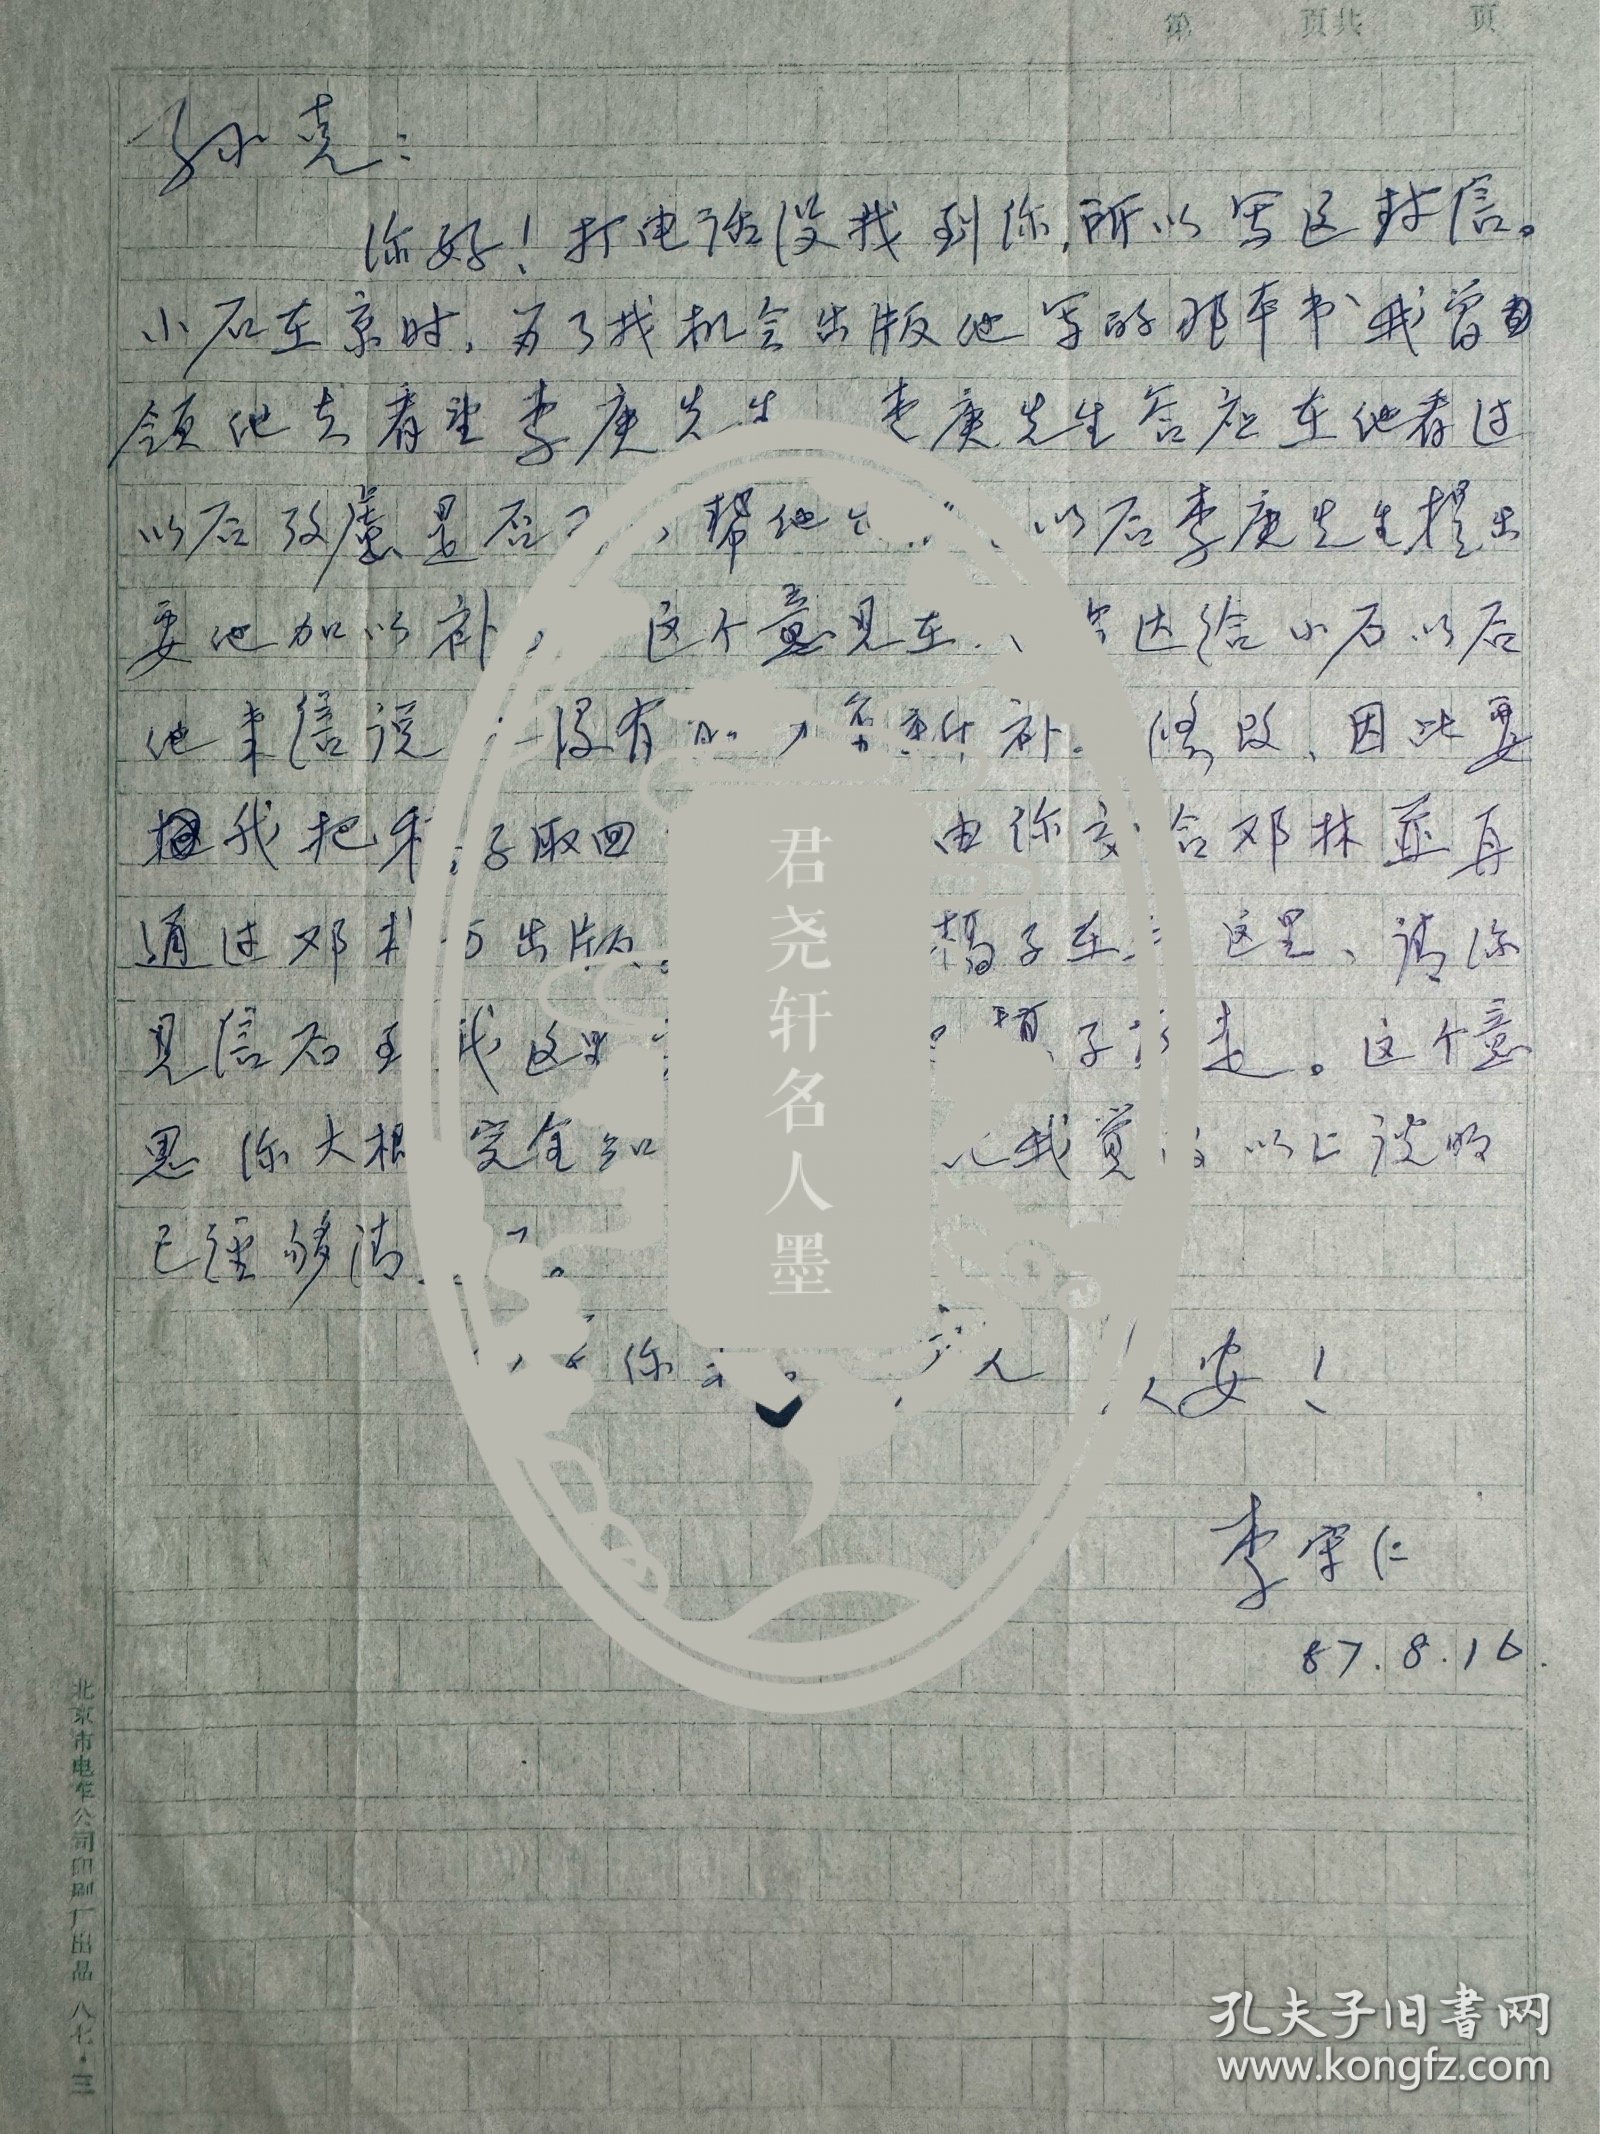 第 页共 页
孙克：
你好！打电话没找到你，所以写这封信。
小石在京时，为了找机会出版他写的那本书我曾
领他去看望李庚先生 李庚先生答应在他看过
以后攷慮是否 帮他 以后李庚先生提出
要他加以补 这个意见在 达给小石以后
他来信说 没有 力 重新补 修改、因此要
我把稿子取回 由你交给邓林並再
通过邓林 出版。 稿子在 这里、请你
见信后到我这里 稿子 走。这个意
思你大概完全知 我觉得以上谈的
已经够清 了。
你 人 安！
李宗仁
87.8.16.
北京市电车公司印刷厂出品 八七·三
君尧轩名人墨
孔夫子旧书网
www.kongfz.com